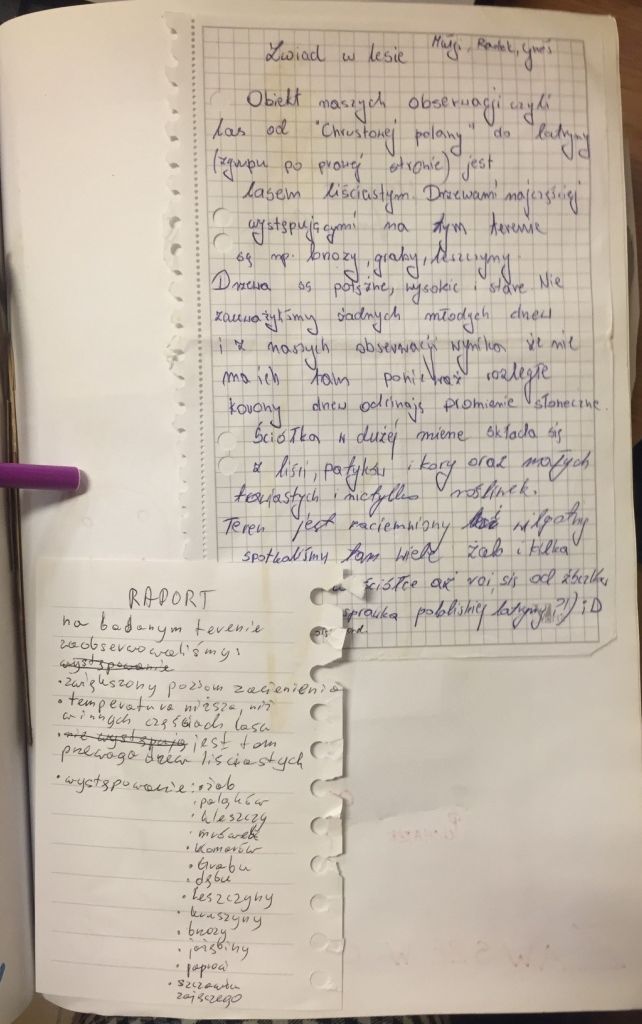 Zwiad w lesie
Radek,
Obiekt naszych obserwacji czyli
las od "Chrustowej polany" do latryny
(zgrupu po prawej stronie) jest
lasem liściastym. Drzewami najczęściej
występującymi na tym terenie
są np. brzozy, graby, leszczyny.
Drzewa są potężne, wysokie i stare Nie
zauważyłismy żadnych młodych drzew
i z naszych obserwacji wynika że nie
ma ich tam ponieważ rozległe
korony drzew odcinają promienie słoneczne.
Ściółka w dużej mierze składa się
z liści, patyków i kory oraz małych
trawiastych i nietylko roślinek.
Teren jest zaciemniony wilgotny
spotkaliśmy tam wiele żab i kilka
ściółce aż roi się od
sprawka pobliskiej latryny?!) ;D
RAPORT
na badanym terenie
zaobserwowaliśmy:
występowanie
• zwiększony poziom zacienienia
• temperatura niższa, niż
w innych częściach lasu
• nie występują jest tam
przewaga drzew liściastych
• występowanie: • żab
• pająków
• kleszczy
• mrówek
• komarów
• Grabu
• dębu
• leszczyny
• kruszyny
• brzozy
• jarzębiny
• paproci
• szczawiu
zajęczego